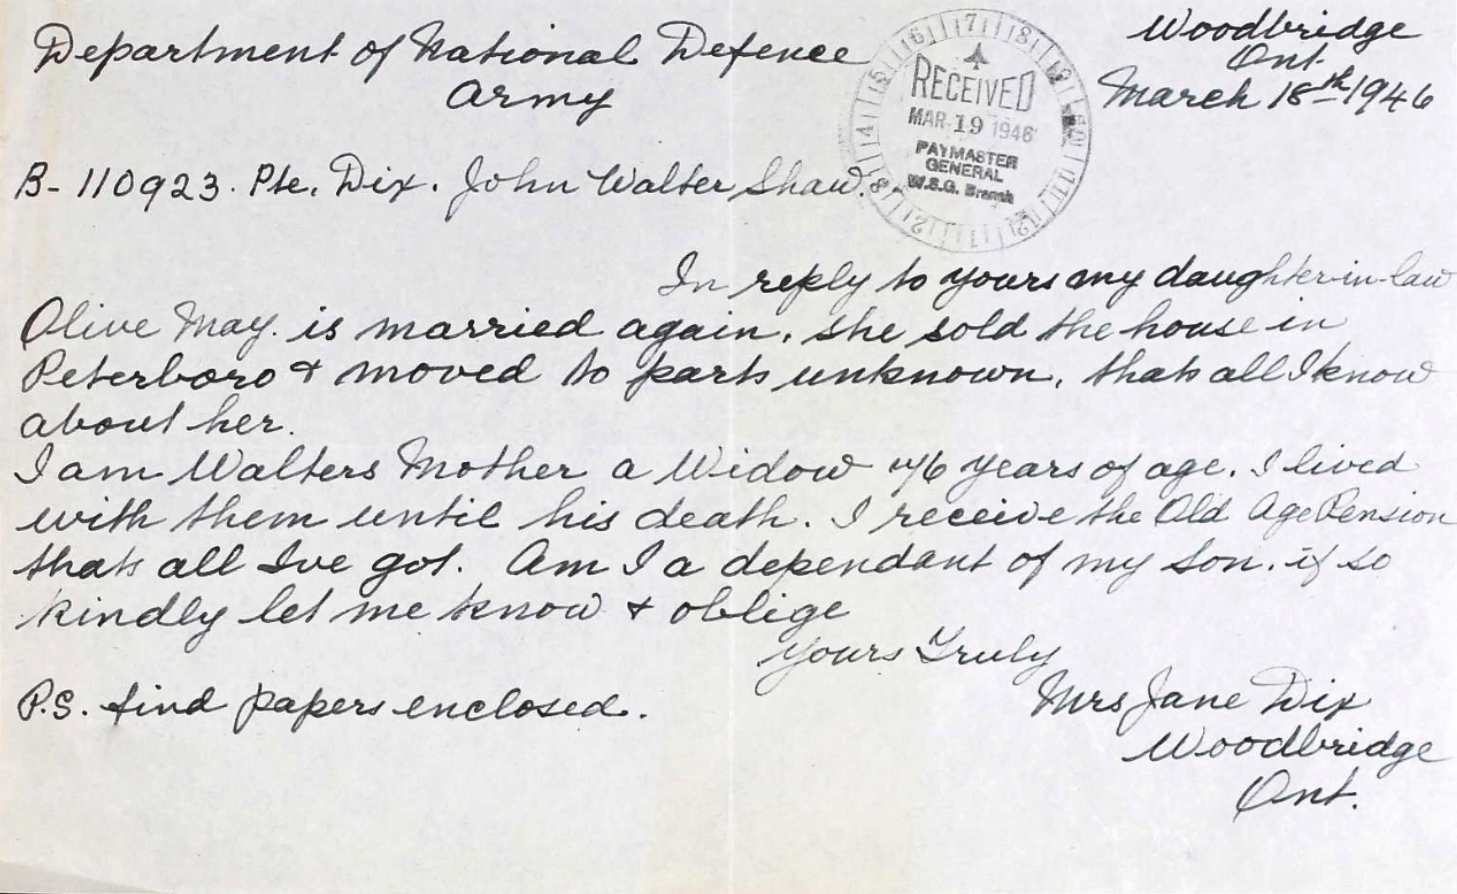 Woodbridge
Ont.
March 18th 1946
Department of National Defence
Army
RECEIVED
MAR 19 1946
PAYMASTER
GENERAL
W.S.G. Branch
B-110923. Pte. Dix. John Walter Shaw.
In reply to yours my daughter-in-law
Olive May. is married again. she sold the house in
Peterboro & moved to parts unknown, thats all I know
about her.
I am Walters Mother a Widow 76 years of age. I lived
with them until his death. I receive the Old Age Pension
thats all Ive got. Am I a dependant of my son. if so
kindly let me know & oblige
yours Truly
Mrs Jane Dix
Woodbridge
Ont.
P.S. find papers enclosed.